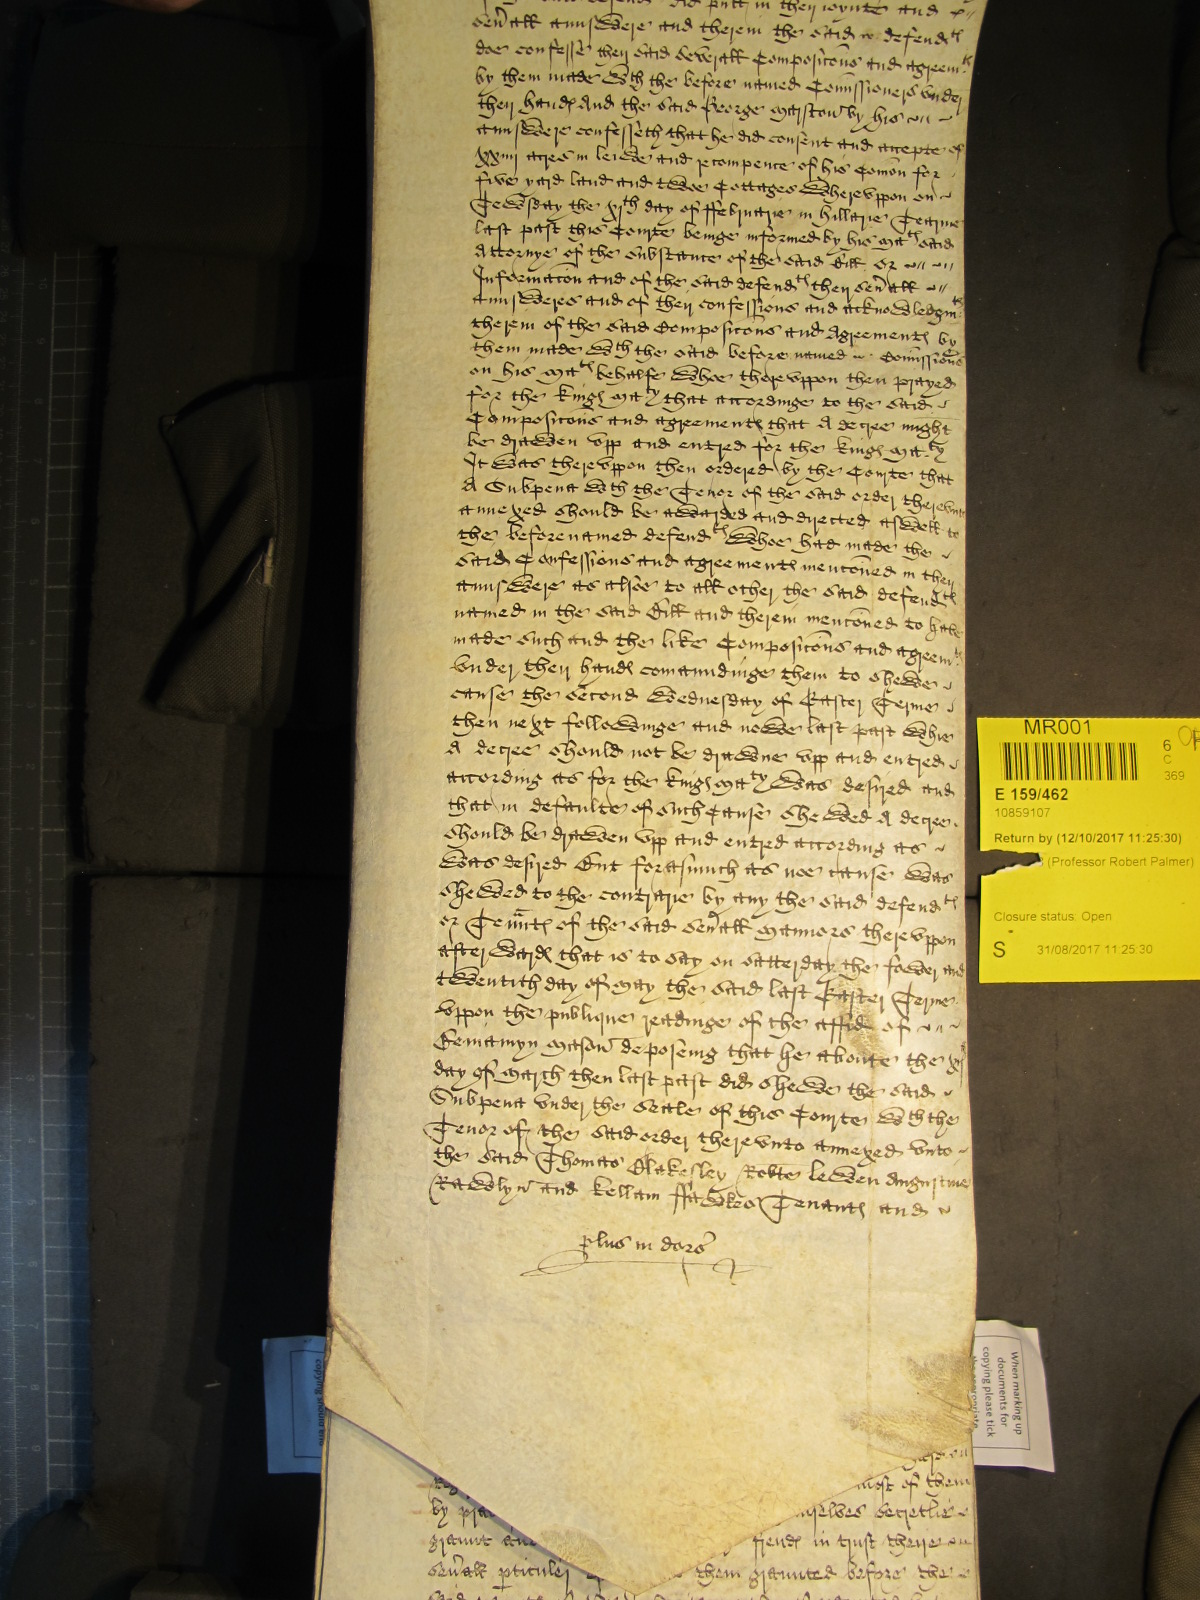 did putt in their joynte and
sev'all annswere and therein the said defendtes
doe confesse their said severall Composicons and agreemtes
by them made wth the before named Comissioners under
their handes And the said George Marstow by his
annswere confesseth that he did consent and accepte of
xxiiij acres in leiwe and recompence of his Comon for
five yard land and twoe Cottages Wherevppon on
Tewsday the xjth day of ffebruarie in hillarie Tearme
last past this Courte beinge informed by his Mates said
Attornye of the substance of the said Bill or
Informacion and of the said defendtes their sev'all
annsweres and of their confessions and acknowledgmtes
therein of the said Composicons and Agreementes by
them made wth the said before named Comissioners
on his Mates behalfe Whoe therevppon then prayed
for the Kinges Maty that accordinge to the said
Composicons and agreementes that A decree might
be drawen vpp and entred for the Kinges Maty
It was therevppon then ordered by the Courte that
A Subpena wth the Tenor of the said order therevnto
annexed should be awarded and directed aswell to
the beforenamed defendtes Whoe had made the
said Confessions and agreementes mentioned in their
annswere as alsoe to all other the said defendtes
named in the said Bill and therein mencioned to have
made such and the like Composicons and agreemtes
vnder their handes comaundinge them to shewe
cause the second Wednesday of Easter Terme
then next followinge and nowe last past Whie
A decree should not be drawne vpp and entred
according as for the Kinges Maty was desired and
that in defaulte of such Cause shewed A decree
should be drawen vpp and entred according as
was desired But forasmuch as noe cause was
shewed to the contrarie by any the said defendtes
or Tenntes of the said sev'all Mannors therevppon
afterwardes that is to say on Satterday the fower and
twentith day of May the said last Easter Terme
vppon the publique readinge of the affid of
Beniamyn Mason deposeing that he aboute the xj
day of March then last past did shewe the said
Subpena vnder the Seale of this Courte wth the
Tenor of the said order therevnto annexed vnto
the said Thomas Blakesley Robte Lewen Augustine
Rawlyn and Kellam ffawkes Tenantes and
plus in dors'
most of them
by
selves directlie
graunt and
friendes in trust their
sev'all p'ticuler
them graunted before the
MR001
6
C
369
E 159/462
10859107
Return by (12/10/2017 11:25:30)
(Professor Robert Palmer)
Closure status: Open
S
31/08/2017 11:25:30
When marking up
documents for
copying please tick
the appropriate
copying should